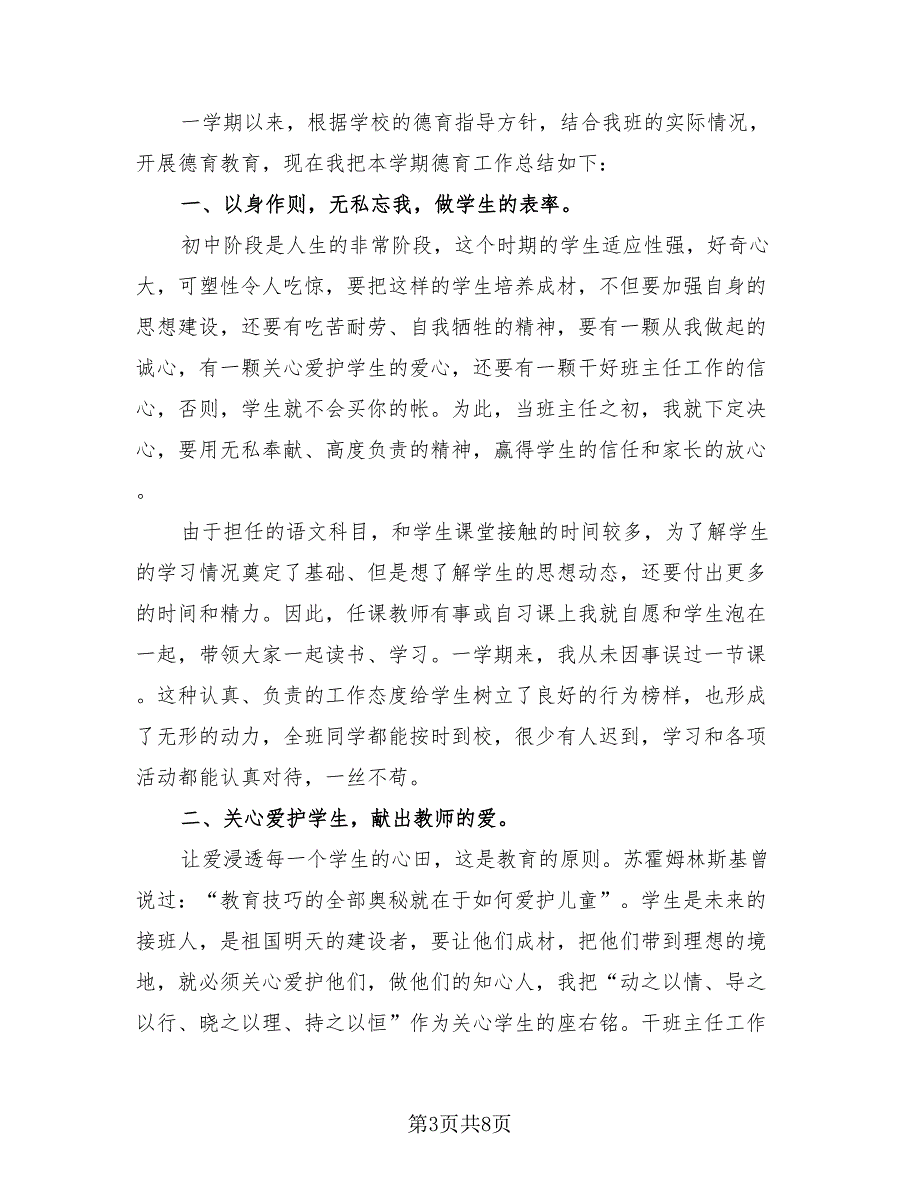 一学期以来，根据学校的德育指导方针，结合我班的实际情况，
开展德育教育，现在我把本学期德育工作总结如下：
一、以身作则，无私忘我，做学生的表率。
初中阶段是人生的非常阶段，这个时期的学生适应性强，好奇心
大，可塑性令人吃惊，要把这样的学生培养成材，不但要加强自身的
思想建设，还要有吃苦耐劳、自我牺牲的精神，要有一颗从我做起的
诚心，有一颗关心爱护学生的爱心，还要有一颗干好班主任工作的信
心，否则，学生就不会买你的帐。为此，当班主任之初，我就下定决
心，要用无私奉献、高度负责的精神，赢得学生的信任和家长的放心
。
由于担任的语文科目，和学生课堂接触的时间较多，为了解学生
的学习情况奠定了基础、但是想了解学生的思想动态，还要付出更多
的时间和精力。因此，任课教师有事或自习课上我就自愿和学生泡在
一起，带领大家一起读书、学习。一学期来，我从未因事误过一节课
。这种认真、负责的工作态度给学生树立了良好的行为榜样，也形成
了无形的动力，全班同学都能按时到校，很少有人迟到，学习和各项
活动都能认真对待，一丝不苟。
二、关心爱护学生，献出教师的爱。
让爱浸透每一个学生的心田，这是教育的原则。苏霍姆林斯基曾
说过：“教育技巧的全部奥秘就在于如何爱护儿童”。学生是未来的
接班人，是祖国明天的建设者，要让他们成材，把他们带到理想的境
地，就必须关心爱护他们，做他们的知心人，我把“动之以情、导之
以行、晓之以理、持之以恒”作为关心学生的座右铭。干班主任工作
第3页共8页